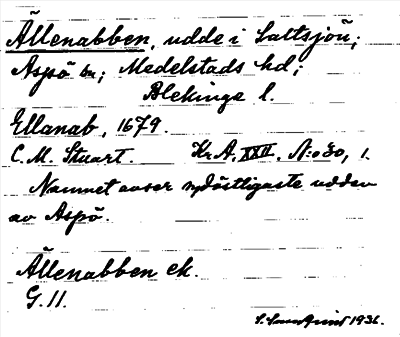 Ällenabben, udde i Saltsjön;
Aspö sn; Medelstads hd;
Blekinge l.
Ellanab, 1679.
C. M. Stuart. Kr. A. XXII. N:o 30, 1.
Namnet avser sydöstligaste udden
av Aspö.
Ällenabben ek.
G. 11.
1936.